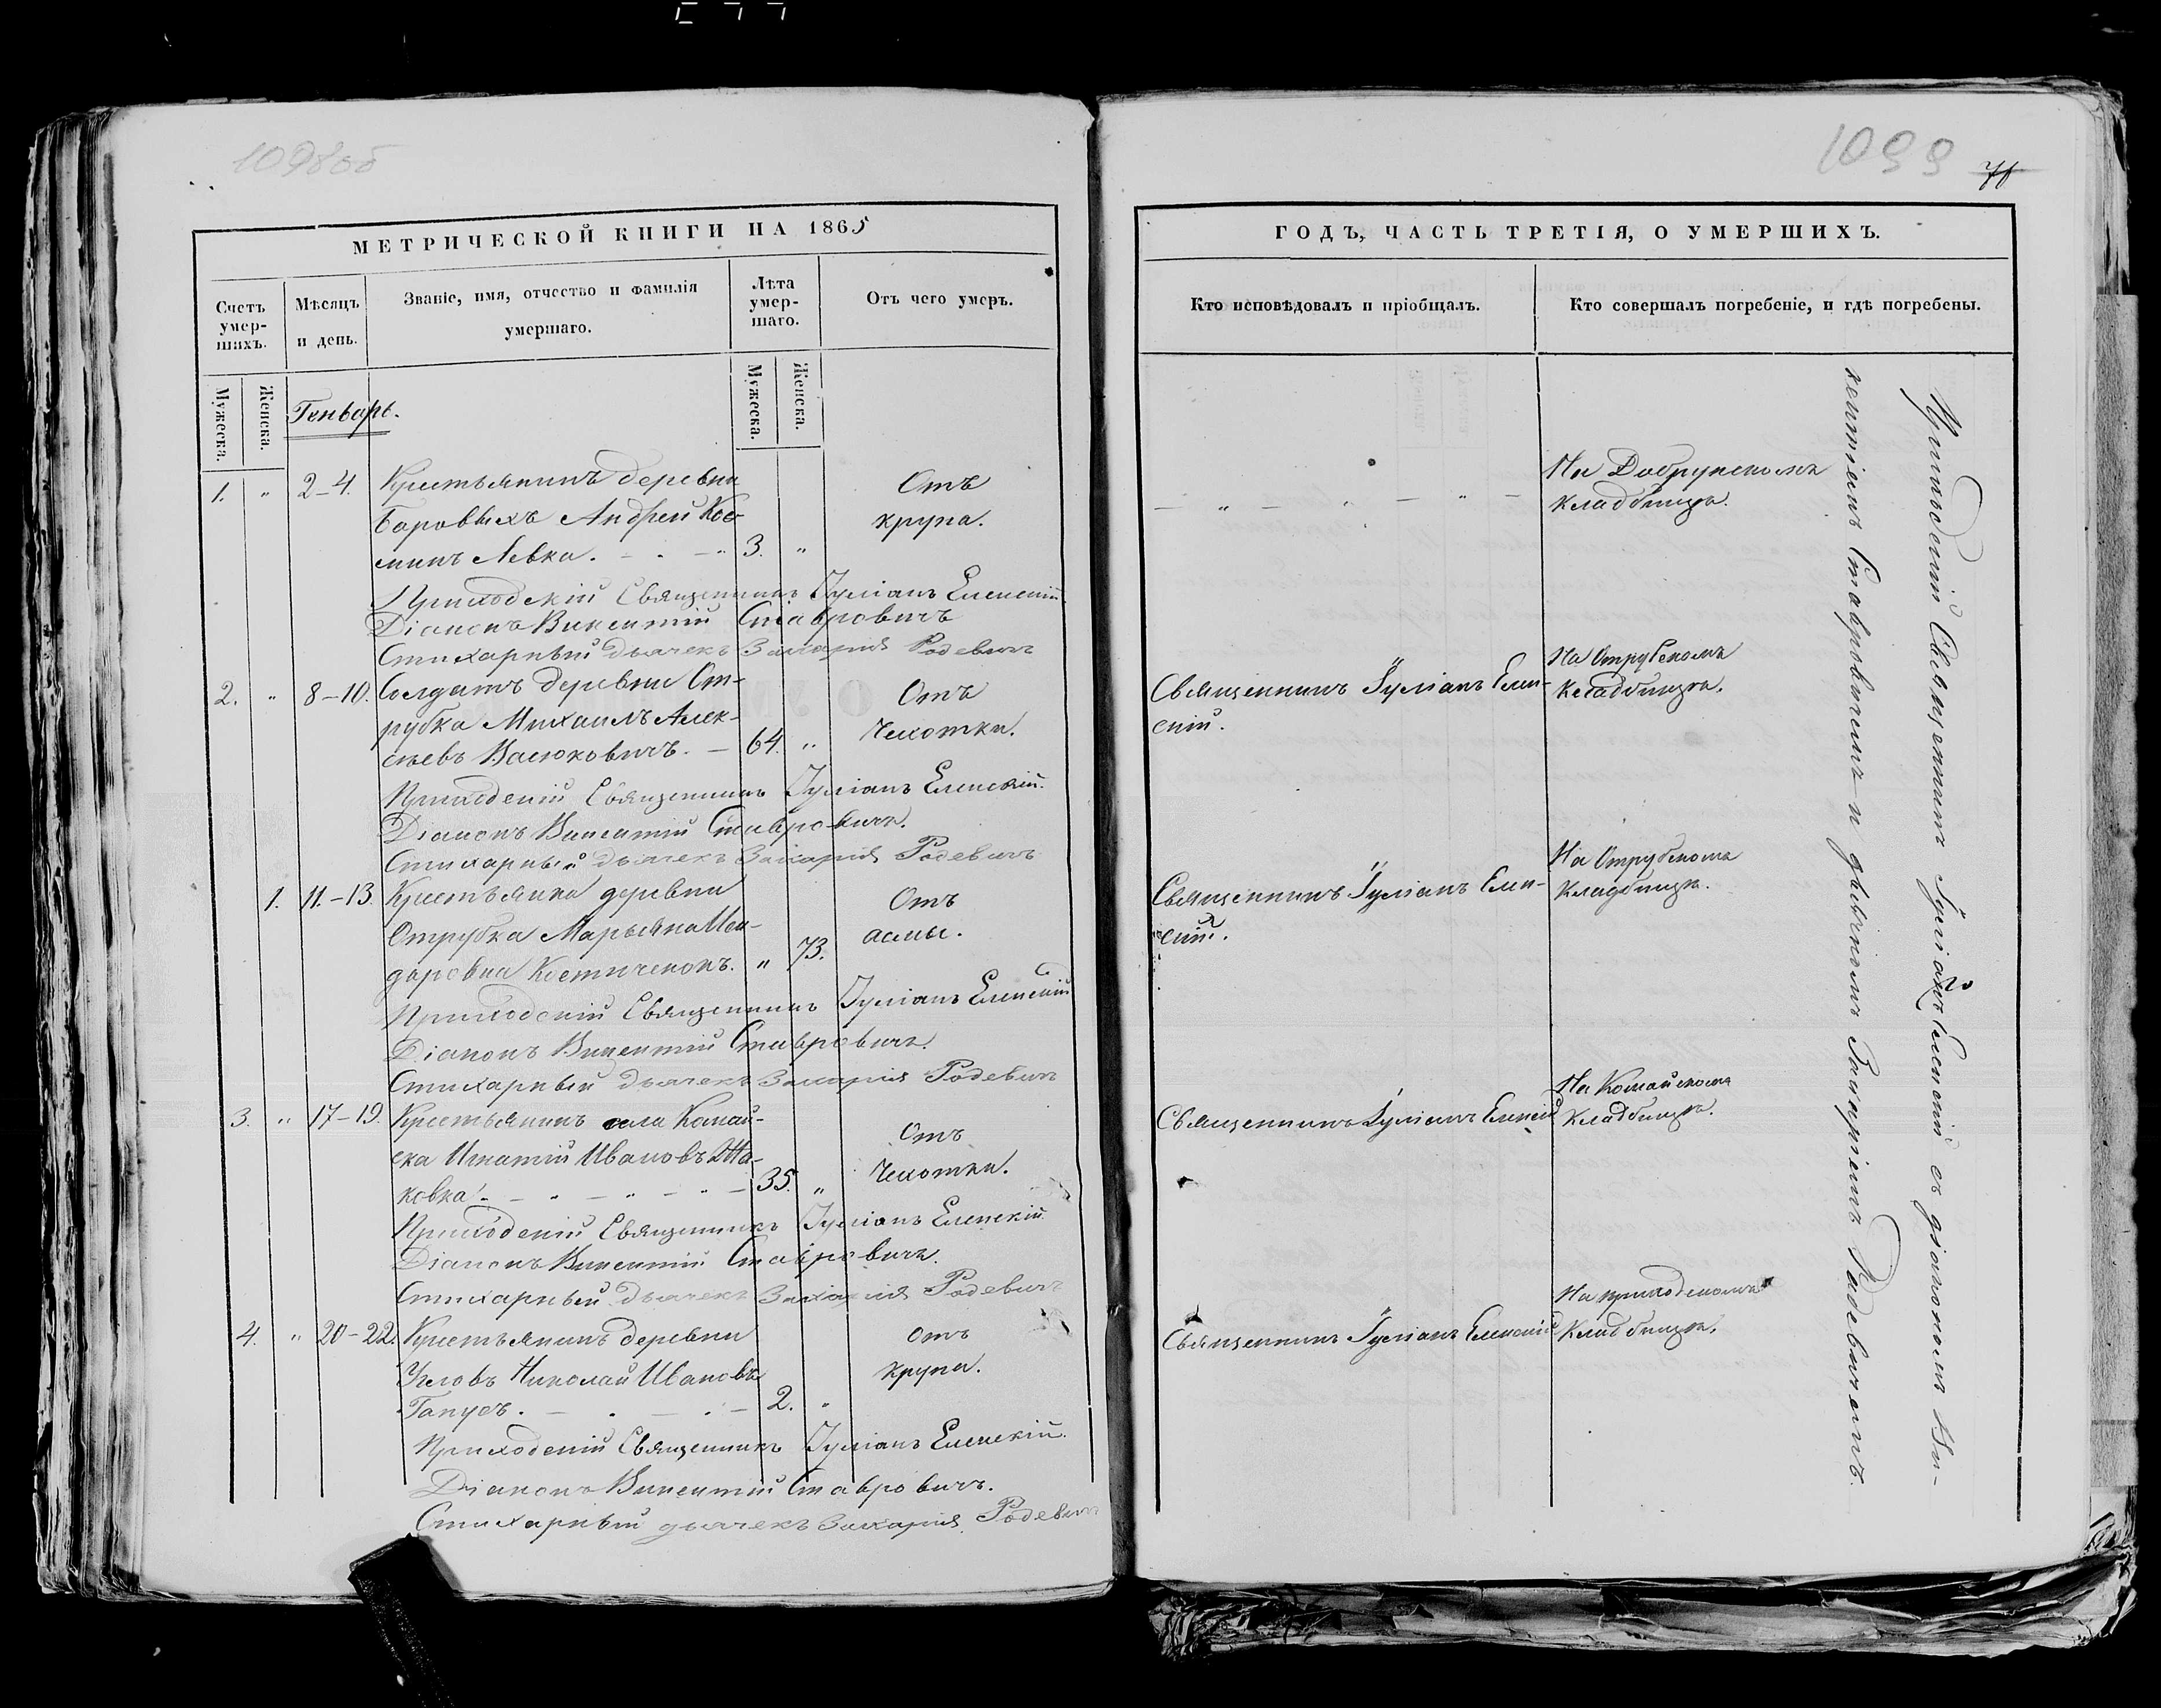 1098об
МЕТРИЧЕСКОЙ КНИГИ НА 1865
Счетъ умер-шихъ.
Мѣсяцъ и день.
Званіе, имя, отчество и фамилія умершаго.
Лѣта умер-шаго.
Отъ чего умеръ.
Мужеска.
Женска.
Мужеска.
Женска.
Генварь.
1. " 2-4. Крестьянинъ деревни Отъ
Боровыхъ Андрей Кос- крупа.
минъ Левка. 3. "
Приходскій Священникъ Іуліанъ Еленскій
Діаконъ Викентій Ставровичъ
Стихарный дьячекъ Захарія Родевичъ
2. " 8-10. Солдатъ деревни От- Отъ
рубка Михаилъ Алек- Чахотки.
сѣевъ Васюковичъ. 64. "
Приходскій Священникъ Іуліанъ Еленскій.
Діаконъ Викентій Ставровичъ.
Стихарный дьячекъ Захарія Родевичъ
1. 11.-13. Крестьянка деревни Отъ
Отрубка Марьяна Иси- асмы.
доровна " 73.
Приходскій Священникъ Іуліанъ Еленскій
Діаконъ Викентій Ставровичъ.
Стихарный дьячекъ Захарія Родевичъ
3. " 17-19. Крестьянинъ села Комай- Отъ
ска Игнатій Ивановъ Жа- Чахотки.
ковка. 35. "
Приходскій Священникъ Іуліанъ Еленскій
Діаконъ Викентій Ставровичъ.
Стихарный дьячекъ Захарія Родевичъ
4. " 20-22. Крестьянинъ деревни отъ
Николай Ивановъ крупа.
Гапуев. 2. "
Приходскій Священникъ Іуліанъ Еленскій.
Діаконъ Викентій Ставровичъ.
Стихарный дьячекъ Захарія Родевичъ
1099
ГОДЪ, ЧАСТЬ ТРЕТІЯ, О УМЕРШИХЪ.
Кто исповѣдовалъ и пріобщалъ.
Кто совершалъ погребеніе, и гдѣ погребены.
На Добрунскомъ
кладбищѣ.
Священникъ Іуліанъ Елен-
скій.
На Отрубскомъ
кладбищѣ.
Священникъ Іуліанъ Елен-
скій.
На Отрубскомъ
кладбищѣ.
Священникъ Іуліанъ Еленскій
На Комайскомъ
кладбищѣ.
Священникъ Іуліанъ Еленскій
На приходскомъ
кладбищѣ.
Приходскій Священникъ Іуліанъ Еленскій съ діакономъ Ви-
кентіемъ Ставровичемъ и дьячкомъ Захаріемъ Радевичемъ.